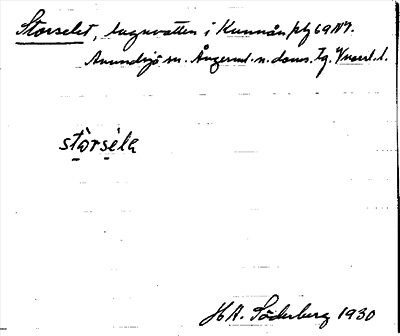 Storselet, lugnvatten i Kunnån, pbg 69 NV.
Anundsjö sn. Ångerml. n. doms. tg. V.norrl. l.
stòrséla
H A. Söderberg 1930